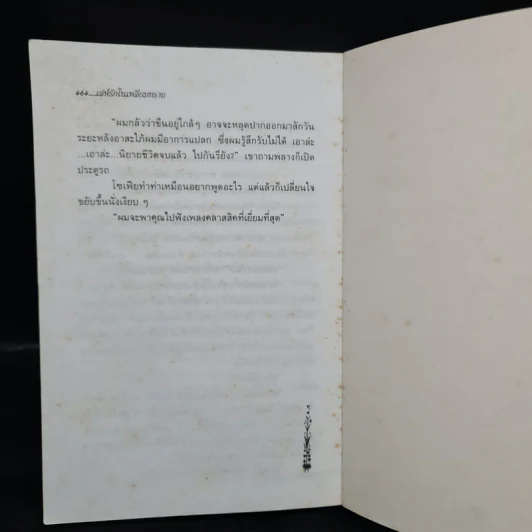 "ผมกลัวว่าขืนอยู่ใกล้ๆ อาจจะหลุดปากออกมาสักวัน
ระยะหลังอาสะใภ้ผมมีอาการแปลก ซึ่งผมรู้สึกรับไม่ได้ เอาล่ะ
...เอาล่ะ...นิยายชีวิตจบแล้ว ไปกันรึยัง?" เขาถามพลางก็เปิด
ประตูรถ
โซเฟียทำท่าเหมือนอยากพูดอะไร แต่แล้วก็เปลี่ยนใจ
ขยับขึ้นนั่งเงียบ ๆ
"ผมจะพาคุณไปฟังเพลงคลาสสิคที่เยี่ยมที่สุด"